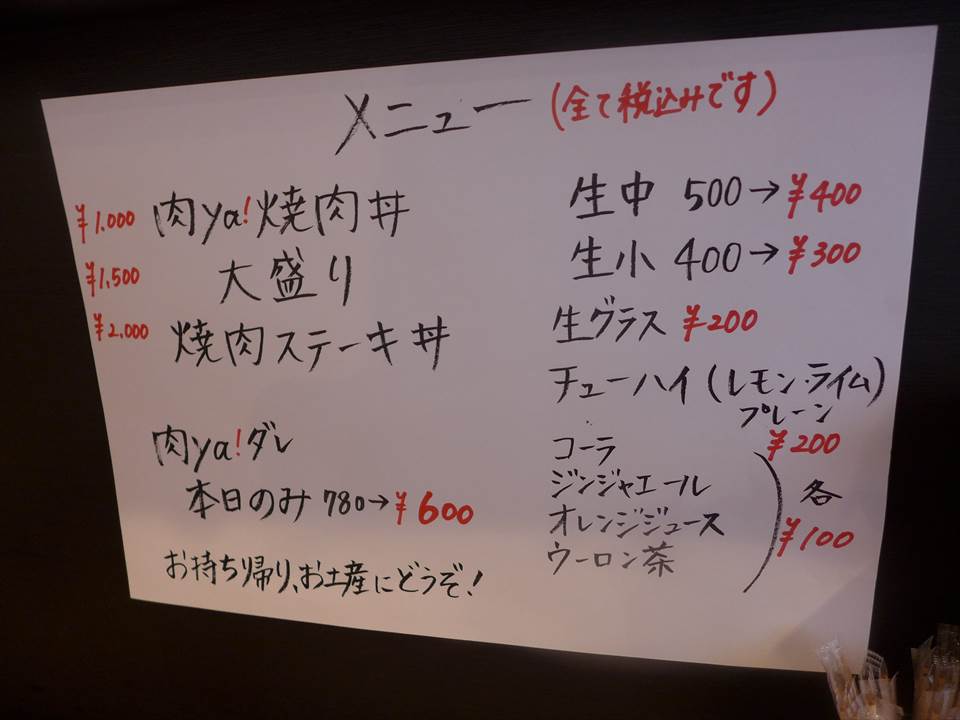 メニュー (全て税込みです)
¥1.000 肉ya!焼肉丼
¥1.500 大盛り
¥2.000 焼肉ステーキ丼
肉ya!ダレ
本日のみ 780→¥600
お持ち帰り、お土産にどうぞ!
生中 500→¥400
生小 400→¥300
生グラス ¥200
チューハイ (レモン・ライム)
プレーン
¥200
コーラ
ジンジャエール
オレンジジュース
ウーロン茶
各
¥100